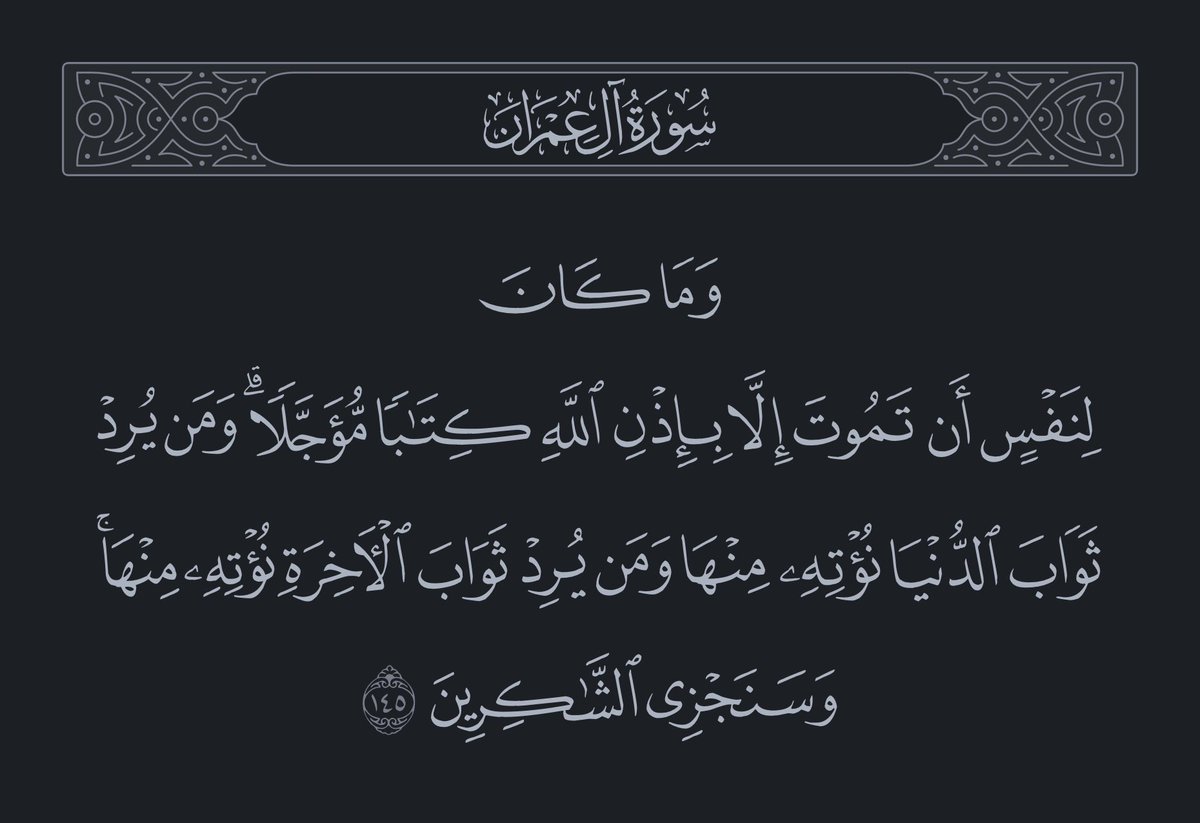 سُورَةُ آلِ عِمْرَانَ
وَمَا كَانَ
لِنَفْسٍ أَن تَمُوتَ إِلَّا بِإِذْنِ ٱللَّهِ كِتَٰبًا مُّؤَجَّلًا ۗ وَمَن يُرِدْ
ثَوَابَ ٱلدُّنْيَا نُؤْتِهِۦ مِنْهَا وَمَن يُرِدْ ثَوَابَ ٱلْءَاخِرَةِ نُؤْتِهِۦ مِنْهَا ۚ
وَسَنَجْزِى ٱلشَّٰكِرِينَ ١٤٥